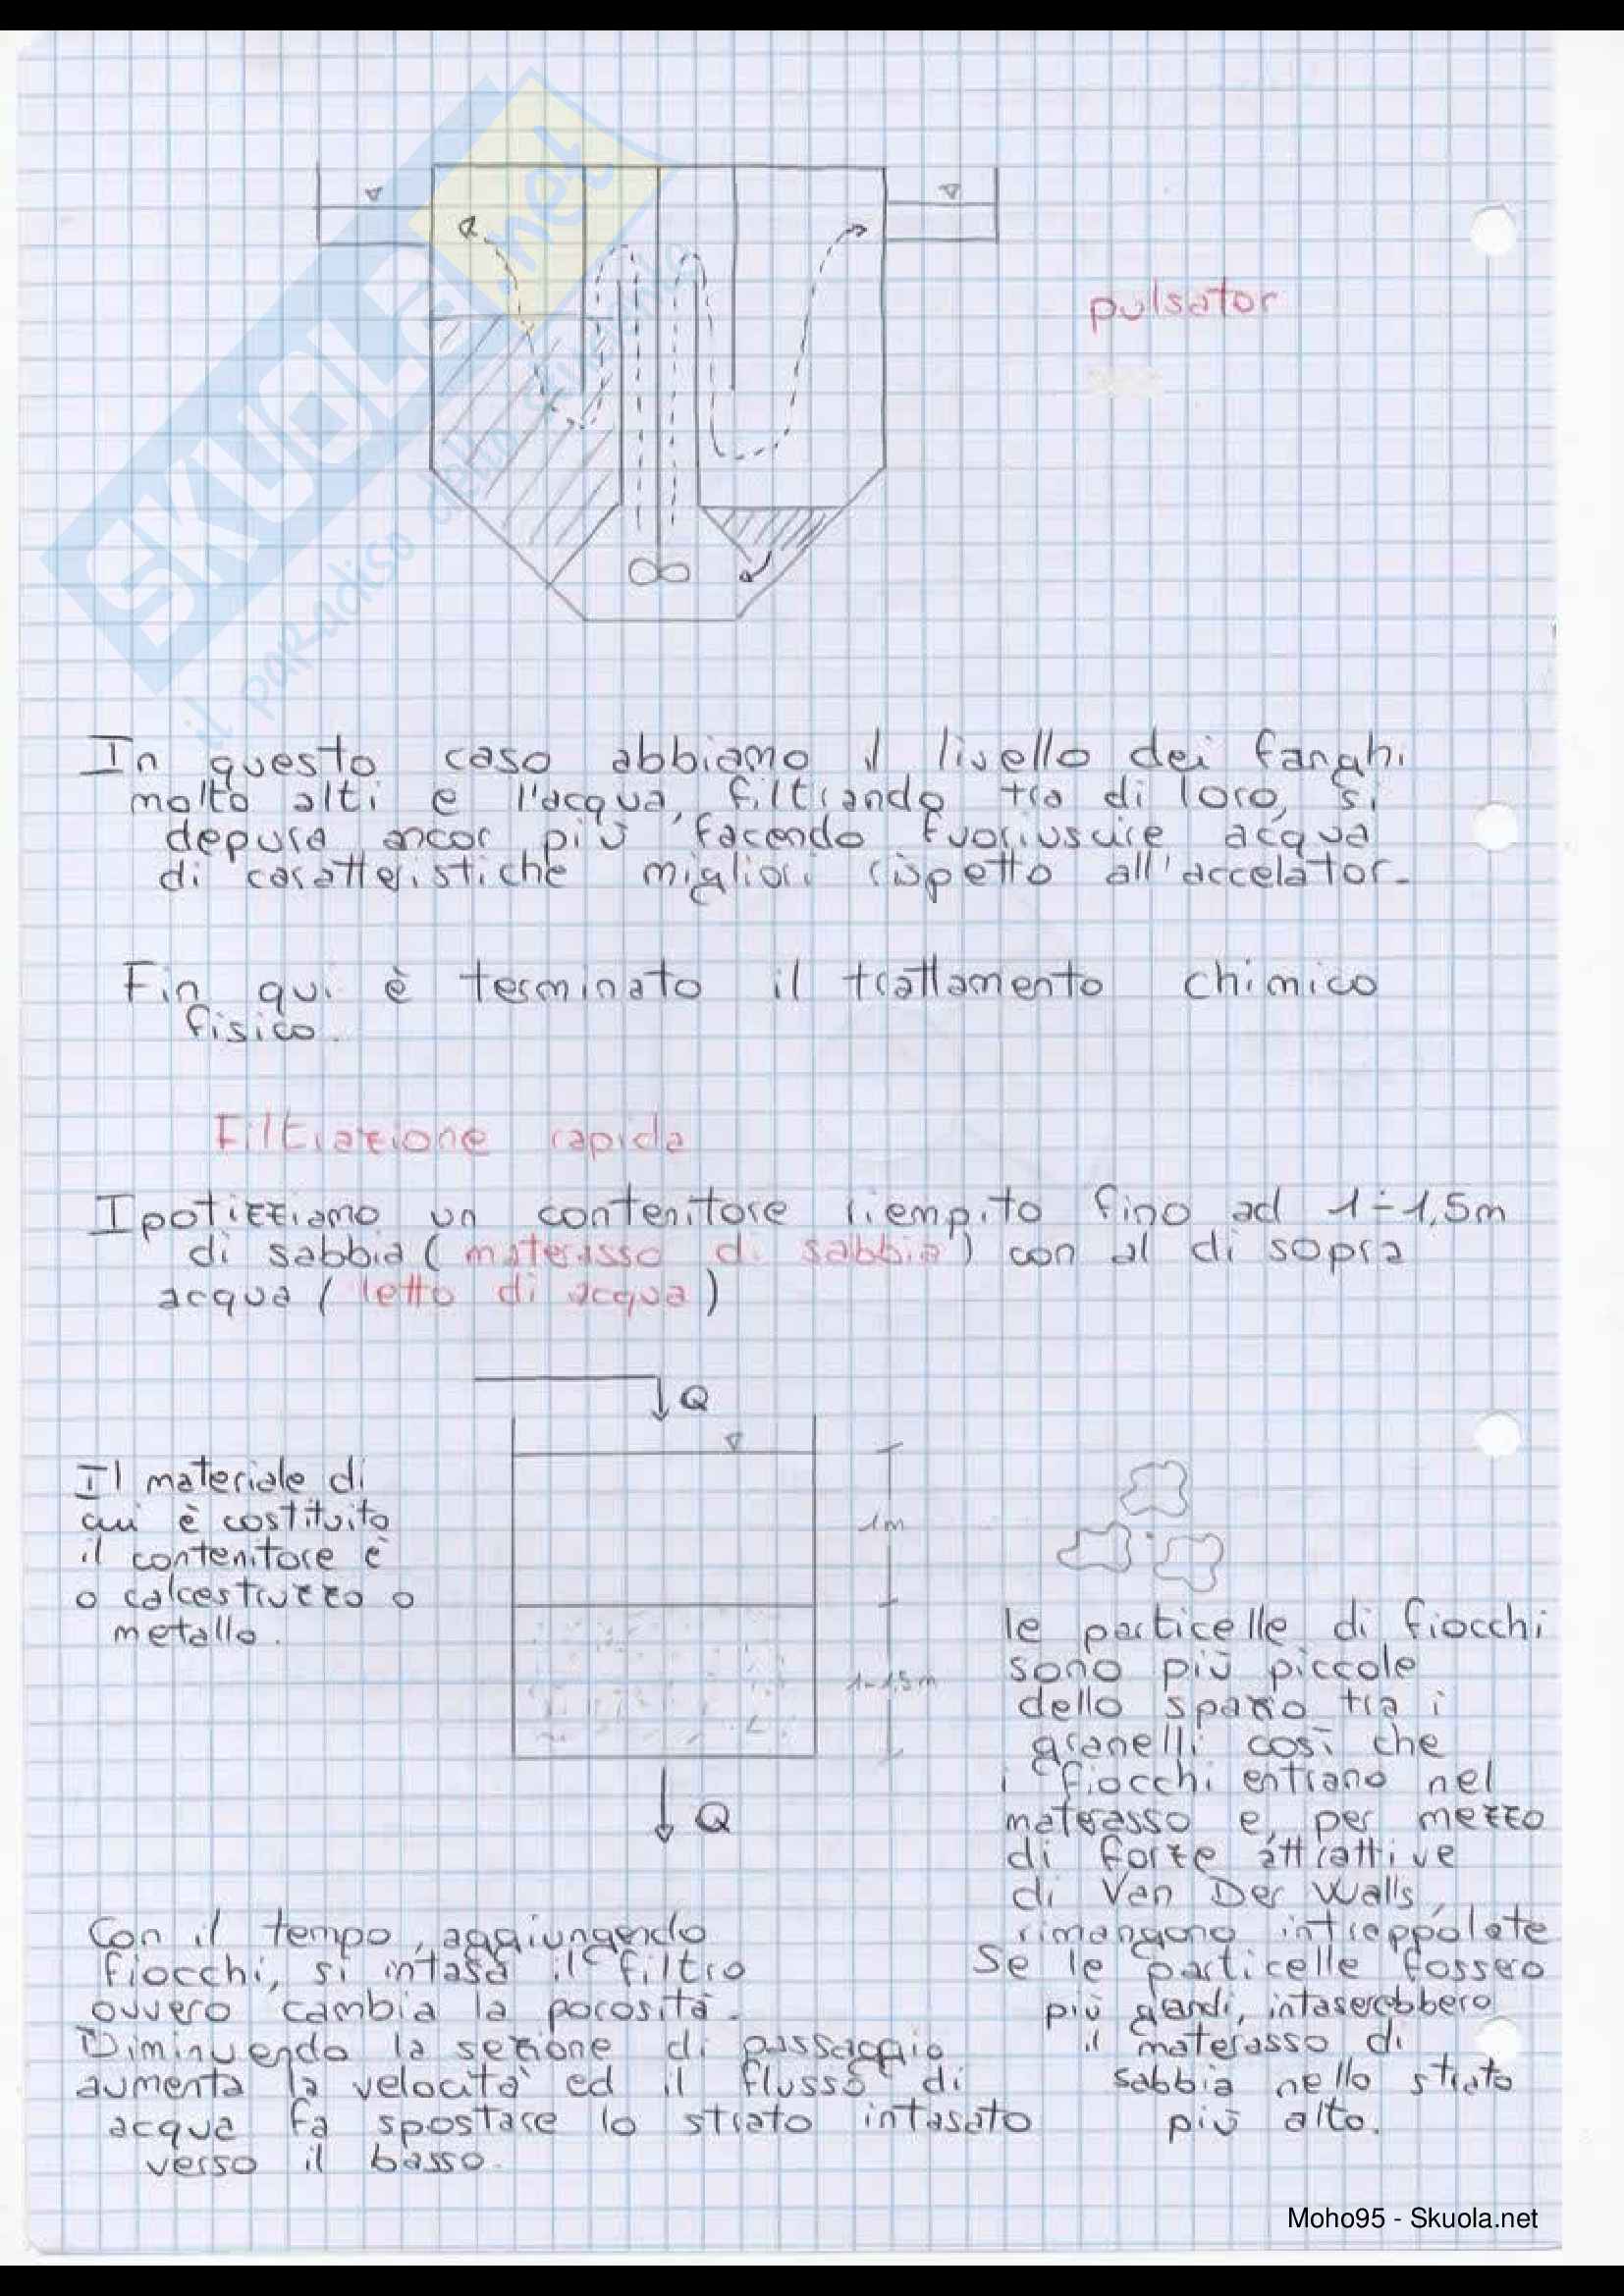 SKUOLA.net
il paradiso dello studente
pulsator
In questo caso abbiamo il livello dei fanghi
molto alti e l'acqua, filtrando tra di loro, si
depura ancor più facendo fuoriuscire acqua
di caratteristiche migliori rispetto all'accelator.
Fin qui è terminato il trattamento chimico
fisico.
Filtrazione rapida
Ipotizziamo un contenitore riempito fino ad 1÷1,5m
di sabbia (materasso di sabbia) con al di sopra
acqua (letto di acqua)
Q
Il materiale di
cui è costituito
il contenitore è
o calcestruzzo o
metallo.
1m
1-1,5m
Q
le particelle di fiocchi
sono più piccole
dello spazio tra i
granelli così che
i fiocchi entrano nel
materasso e, per mezzo
di forze attrattive
di Van Der Walls,
rimangono intrappolate
Se le particelle fossero
più grandi, intaserebbero
il materasso di
sabbia nello strato
più alto.
Con il tempo, aggiungendo
fiocchi, si intasa il filtro
ovvero cambia la porosità.
Diminuendo la sezione di passaggio
aumenta la velocità ed il flusso di
acqua fa spostare lo strato intasato
verso il basso.
Moho95 - Skuola.net